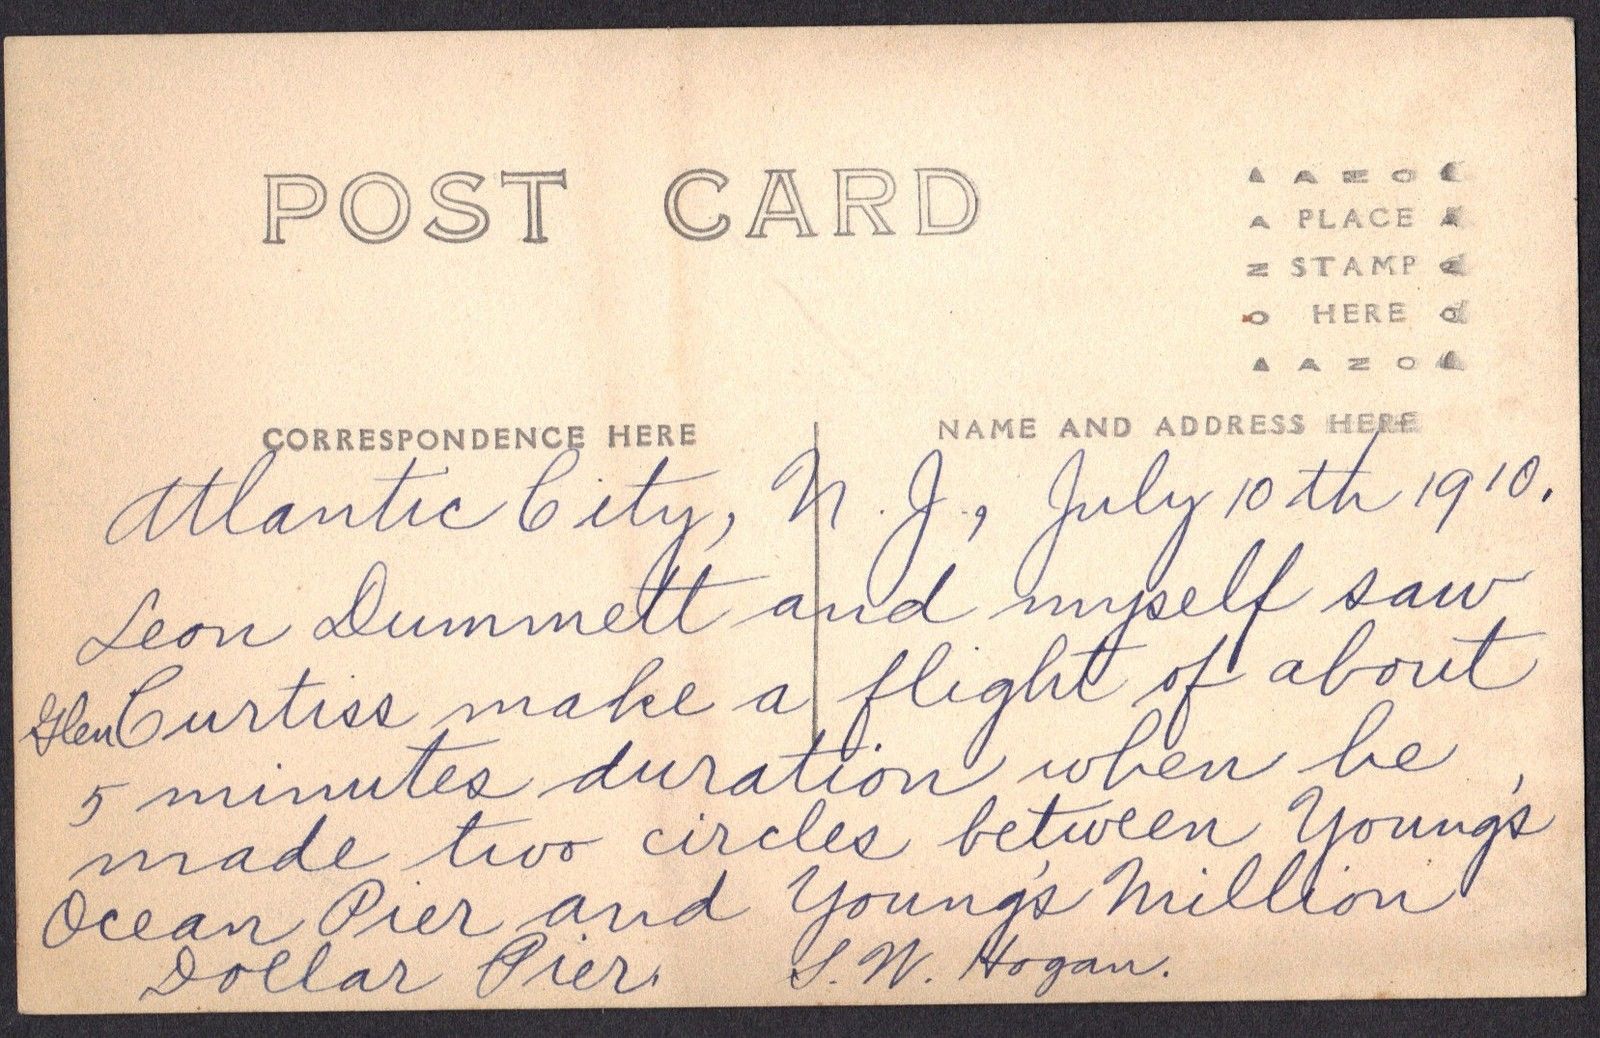 POST CARD
A A Z O
A PLACE A
Z STAMP Z
O HERE O
A A Z O
CORRESPONDENCE HERE
NAME AND ADDRESS HERE
Atlantic City, N. J., July 10th 1910.
Leon Dummett and myself saw
Glen Curtiss make a flight of about
5 minutes duration when he
made two circles between Young's
Ocean Pier and Young's Million
Dollar Pier. S. W. Hogan.